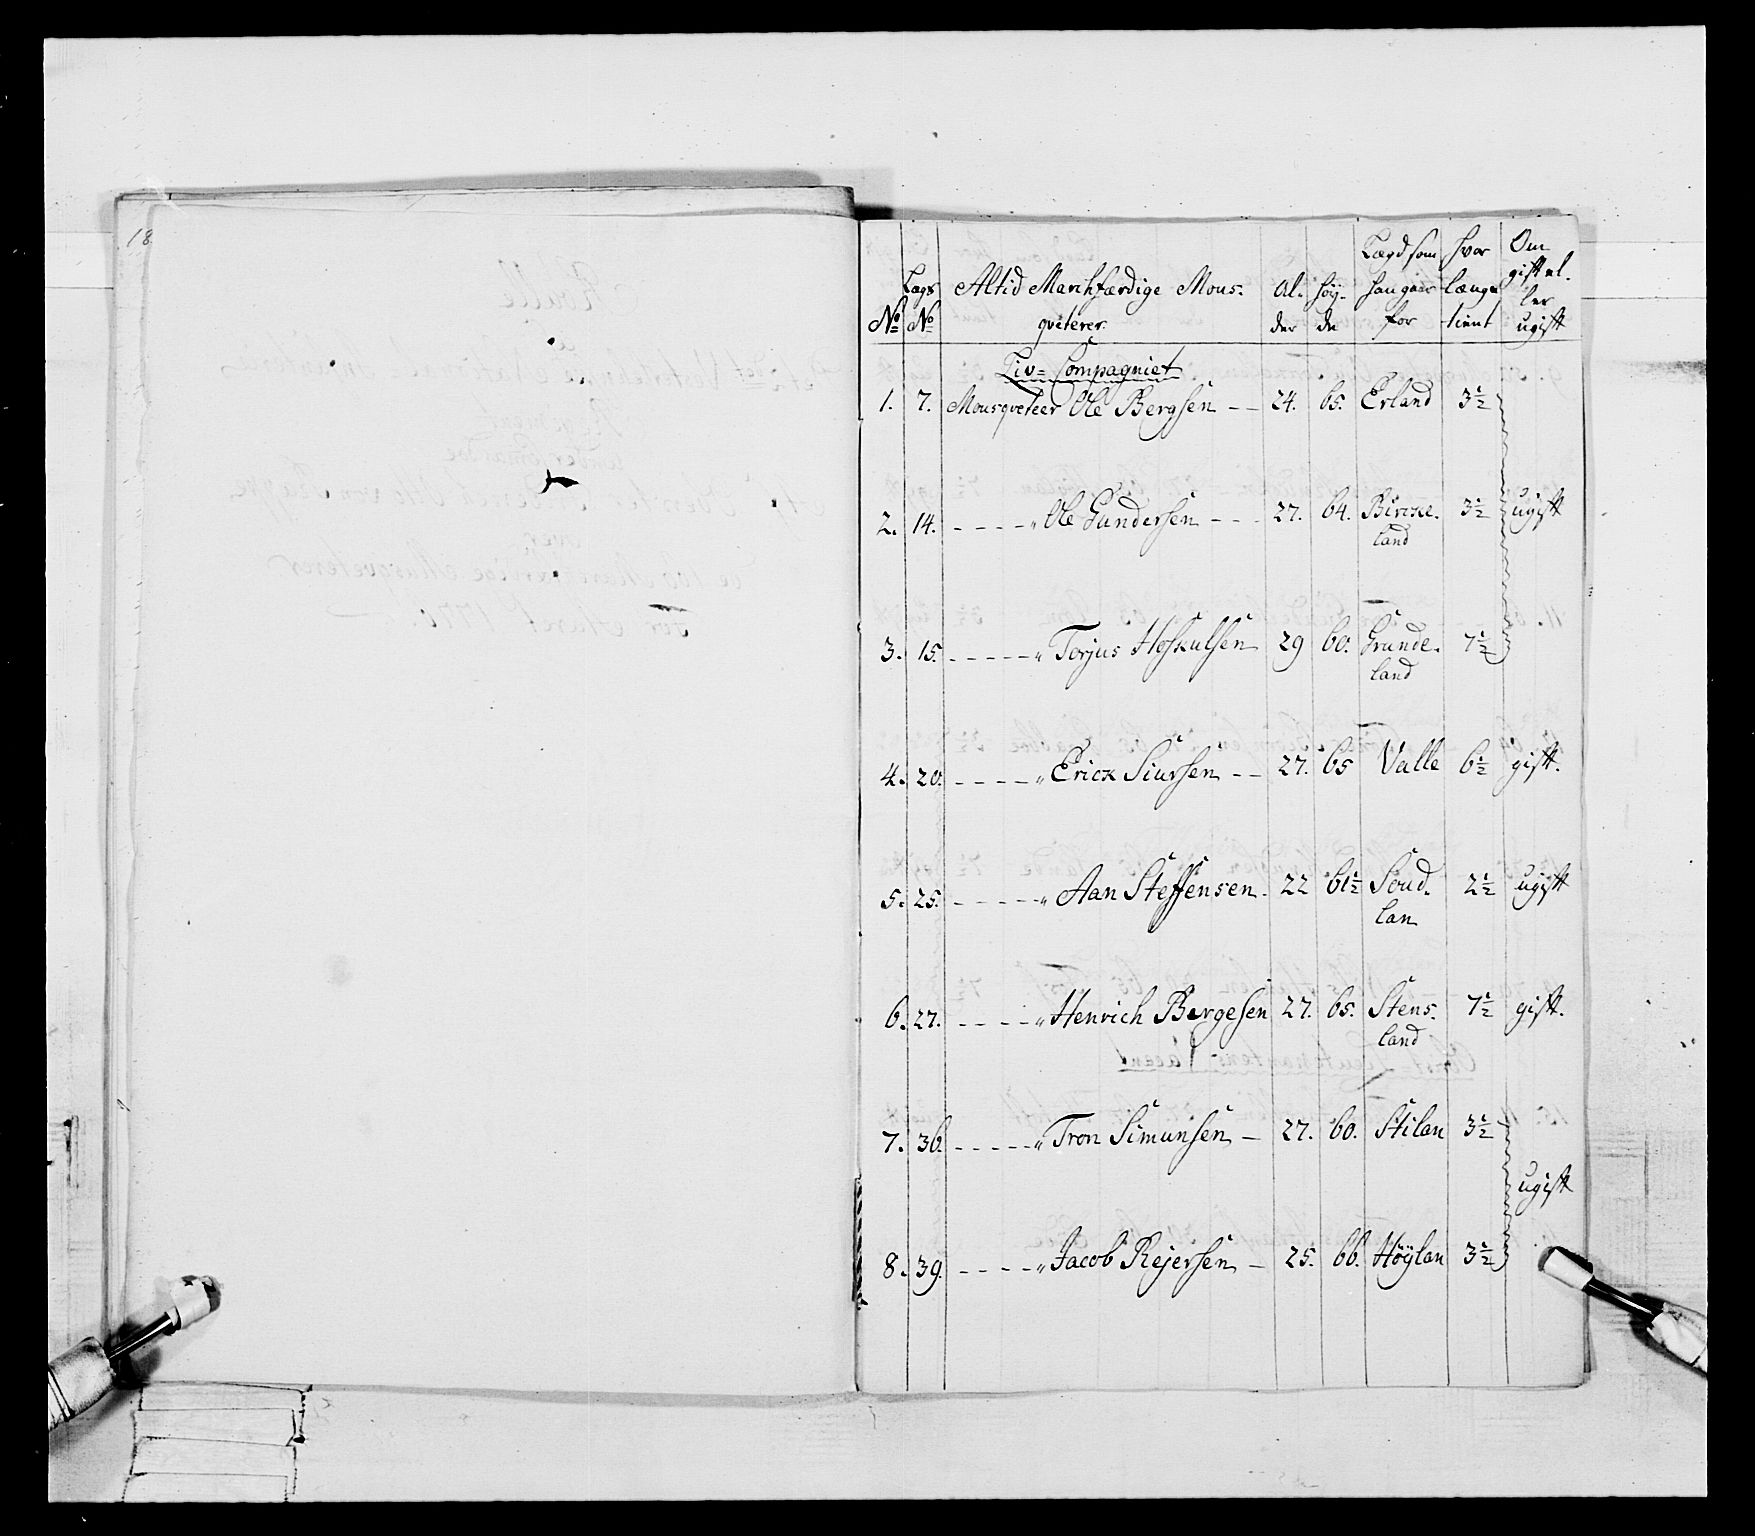 18
No Lægs No Altid Marchfærdige Mous-
qveterer. Al-
der Høy-
de Lægd som
han gaar
for hvor
længe
tient Om
gift el-
ler
ugift
Liv-Compagniet
1. 7. Mousqveteer Ole Bergsen -- 24. 65. Erland 3½
2. 14. - - - - " Ole Gundersen - - - 27. 64. Bircke-
land 3½ ugift
3. 15. - - - - - " Torjus Hoskulsen 29 60. Grunde-
land 7½
4. 20. - - - - " Erick Siursen -- 27. 65 Valle 6½ gift.
5. 25. - - - - - " Aan Steffensen - 22 61½ Soud-
lan 2½ ugift
6. 27. - - - - " Henrich Bergesen 27. 65. Stens-
land 7½ gift.
7. 36. - - - - - " Tron Simunsen - 27. 60. Stilan 3½
ugift
8. 39. - - - - " Jacob Rejersen - 25. 66. Höÿlan 3½